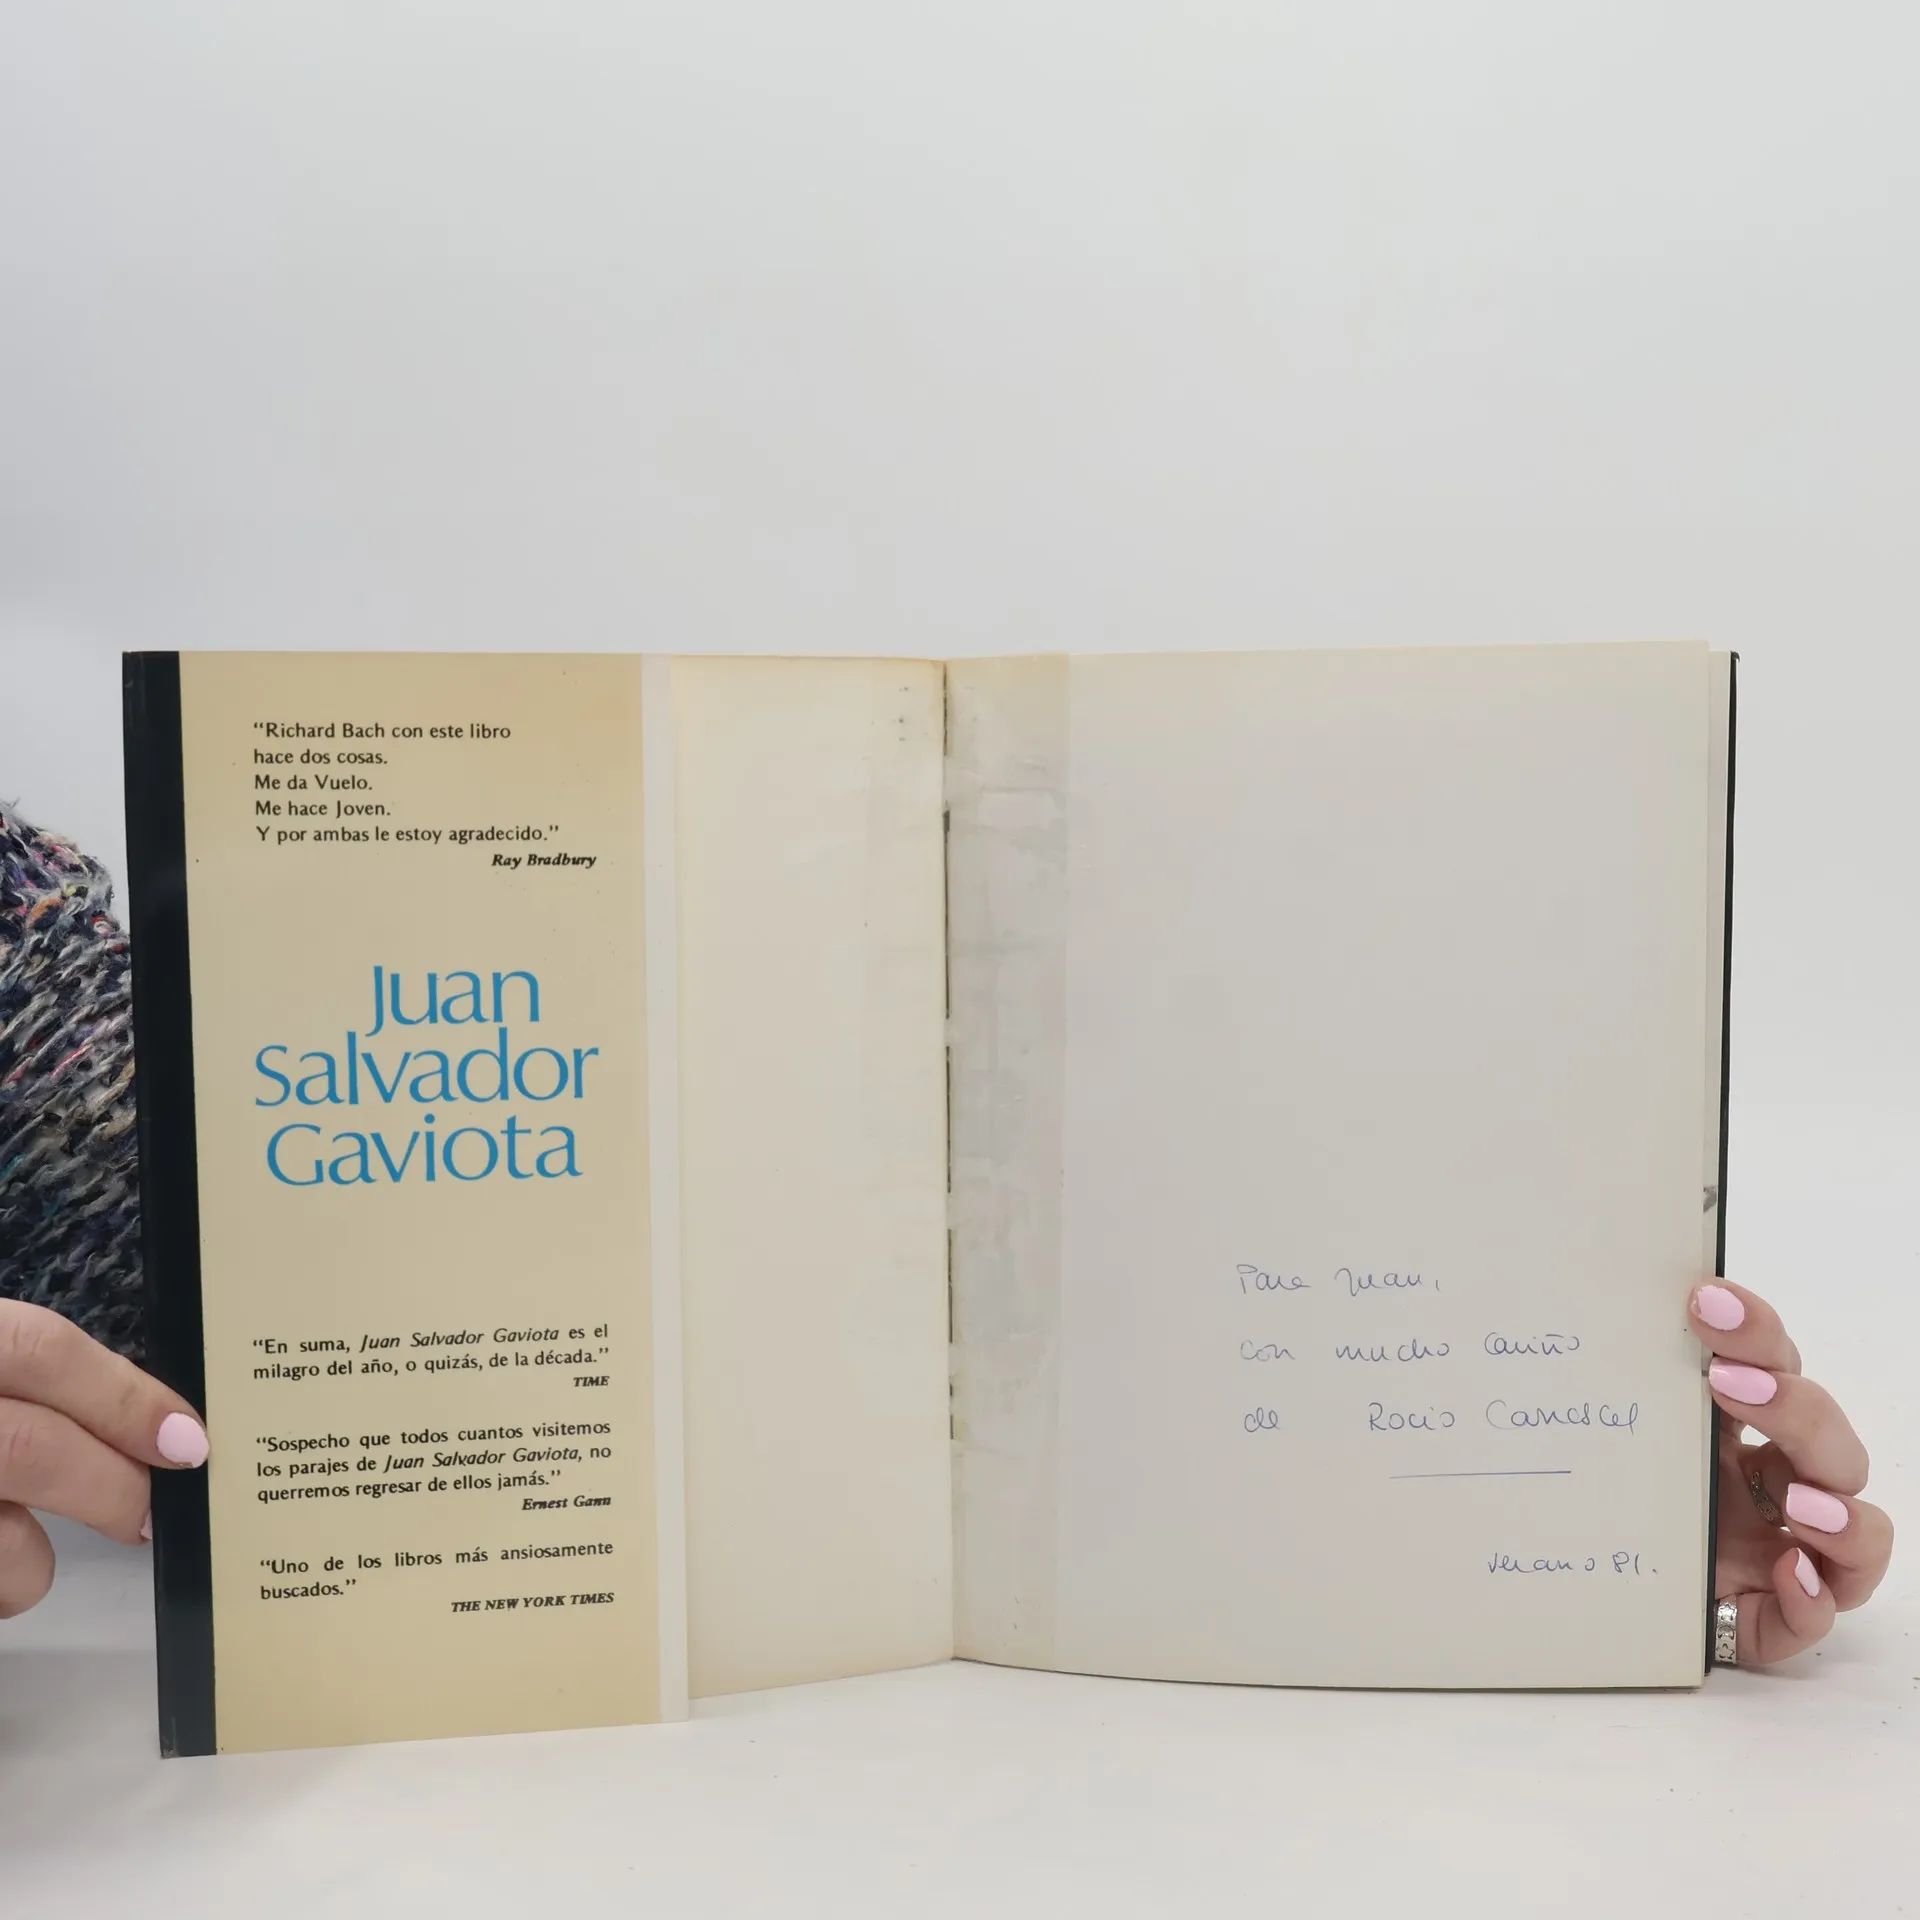 “Richard Bach con este libro
hace dos cosas.
Me da Vuelo.
Me hace Joven.
Y por ambas le estoy agradecido.”
Ray Bradbury
Juan
Salvador
Gaviota
“En suma, Juan Salvador Gaviota es el
milagro del año, o quizás, de la década.”
TIME
“Sospecho que todos cuantos visitemos
los parajes de Juan Salvador Gaviota, no
querremos regresar de ellos jamás.”
Ernest Gann
“Uno de los libros más ansiosamente
buscados.”
THE NEW YORK TIMES
Para Juan,
con mucho cariño
de Rocio
verano 81.